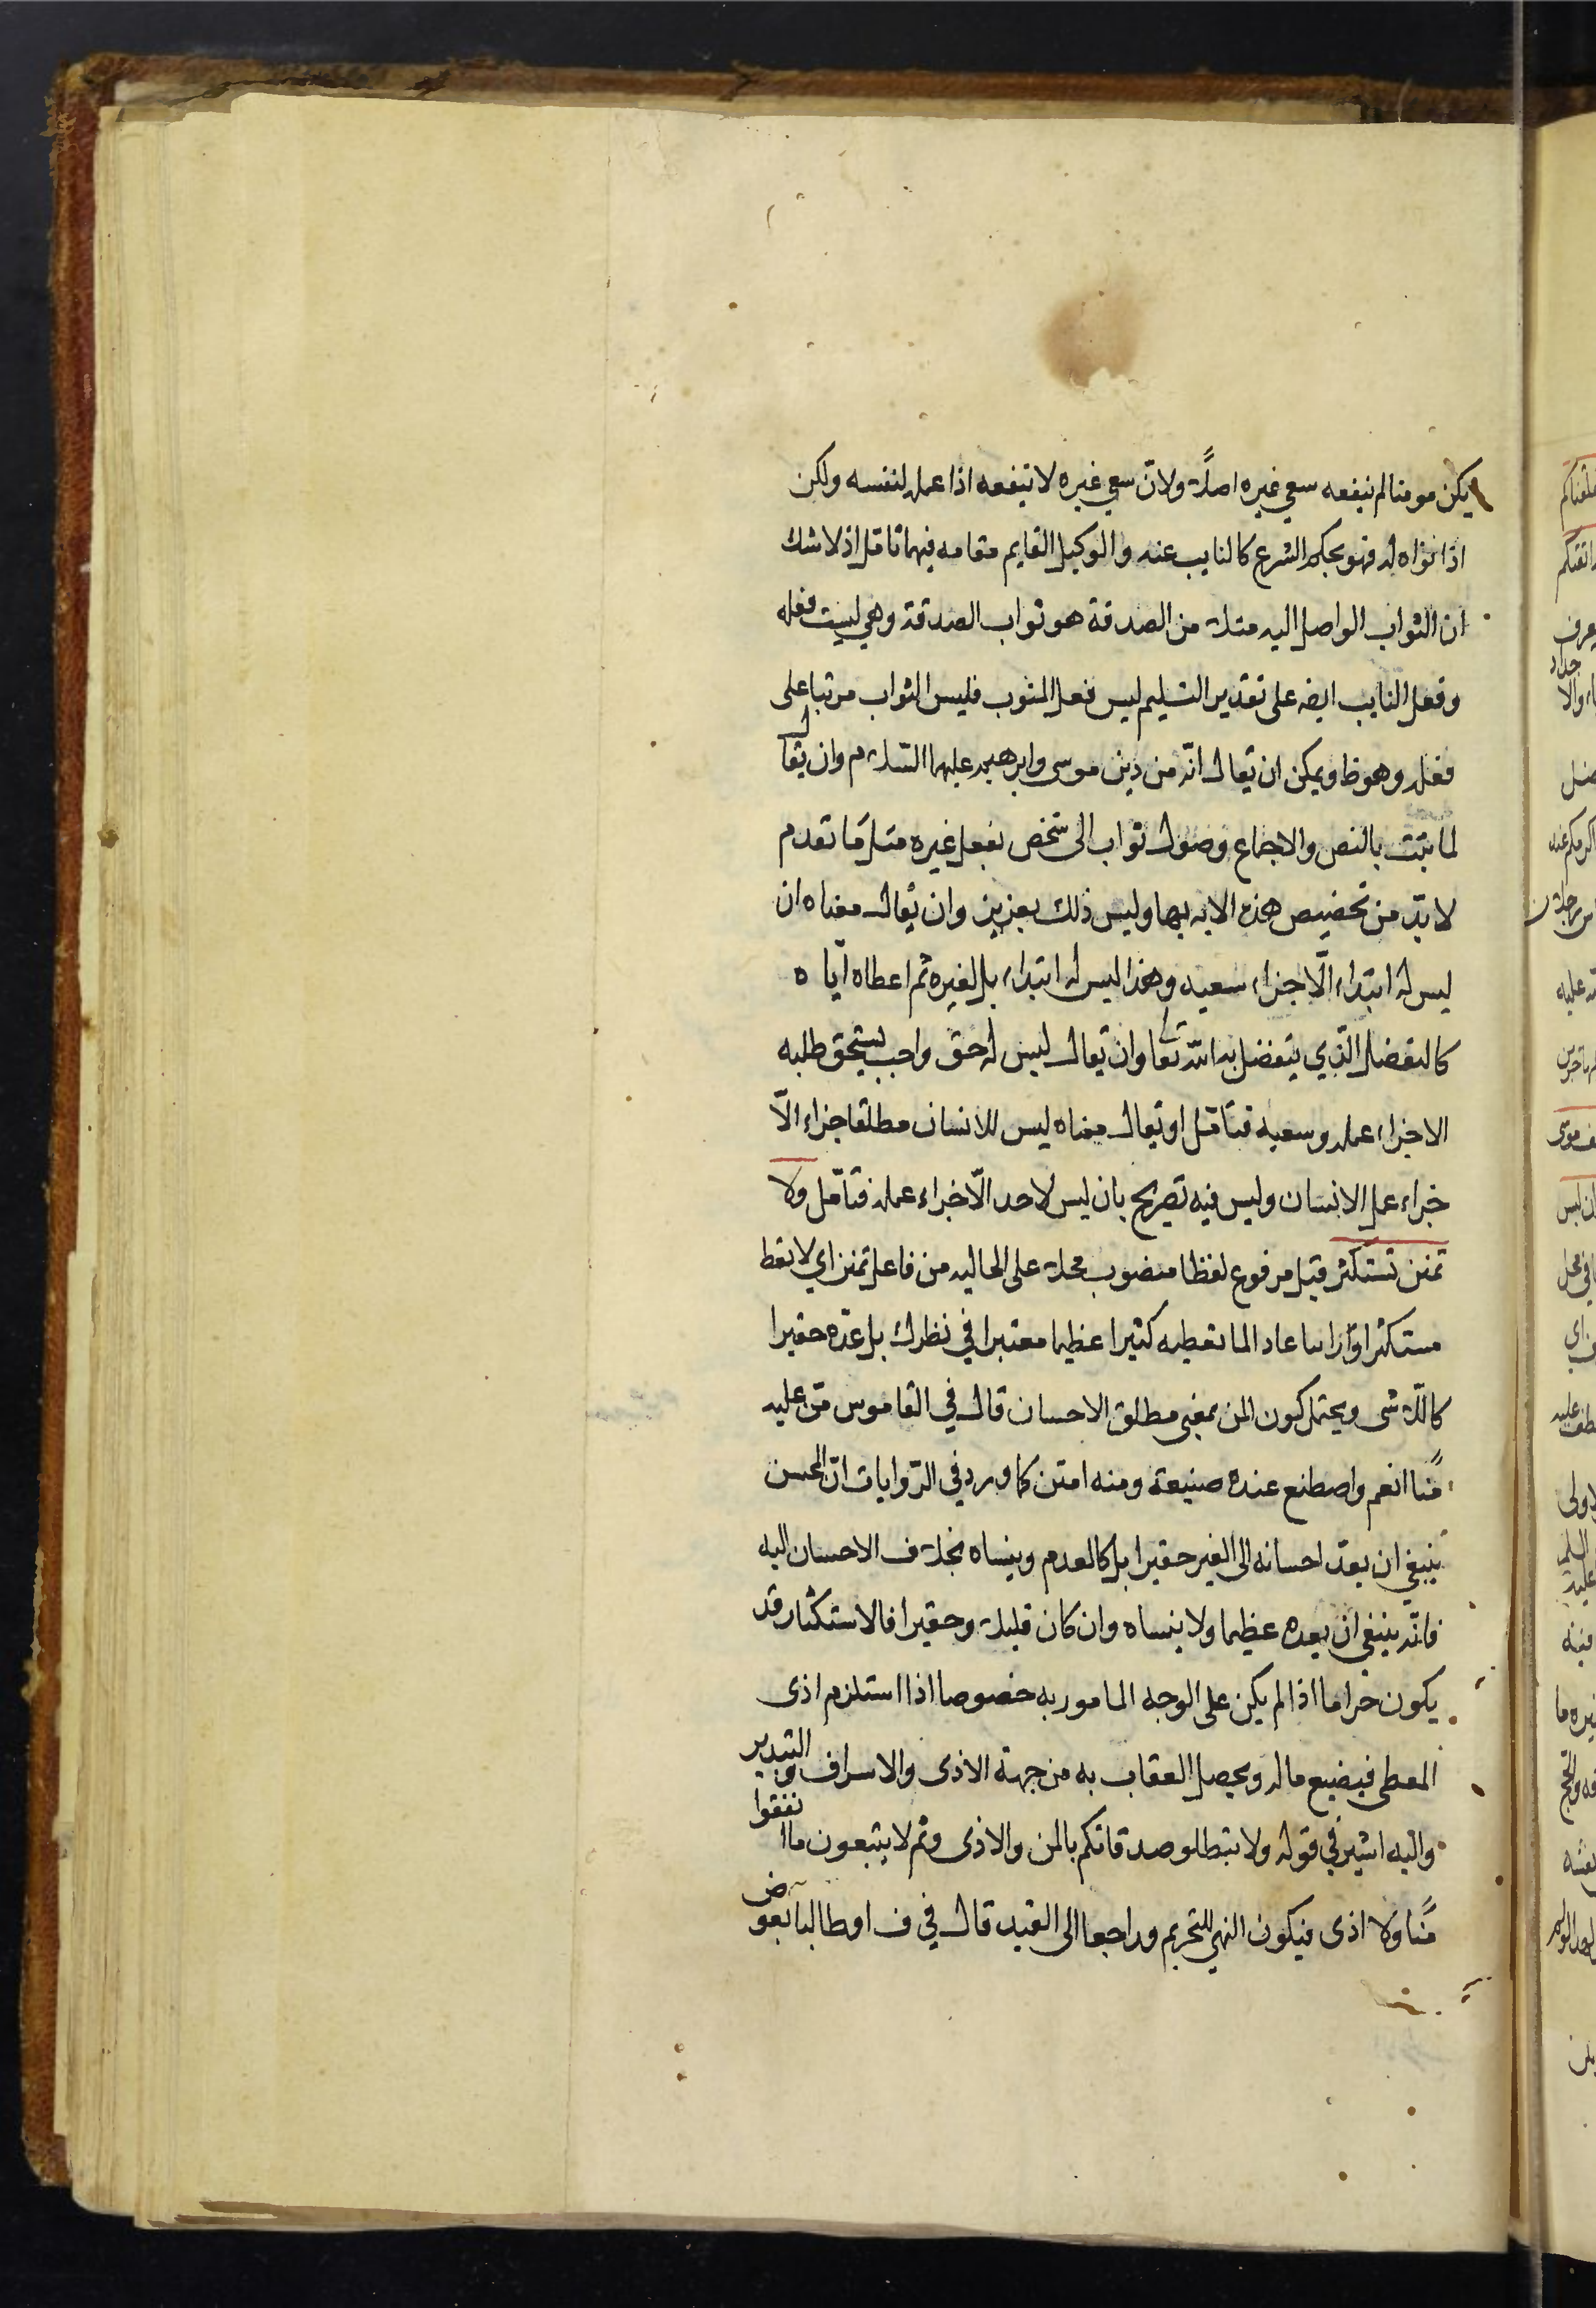 يكن مومنا لم ينفعه سعي غيره اصلاً ولانّ سعي غيره لا ينفعه اذا عمله لنفسه ولكن
اذا نواه له فهو بحكم الشرع كالنايب عنه والوكيل القايم مقامه فيهما تامل اذ لا شك
ان الثواب الواصل اليه مثلا من الصدقة هو ثواب الصدقة وهي ليست فعله
وفعل النايب ايضه على تقدير التسليم ليس فعل المنوب فليس الثواب مرتبا على
فعله وهو ظ ويمكن ان يقال انّه من دين موسى وابرهيم عليهما السّلام وان يقال
لما ثبت بالنص والاجماع وصول ثواب الى شخص بفعل غيره مثل ما تقدم
لا بدّ من تخصيص هذه الايه بها وليس ذلك بعزيز وان يقال معناه ان
ليس له ابتداء الّا جزاء سعيه وهذا ليس له ابتداء بل لغيره ثم اعطاه ايّاه
كالتفضل الذي يتفضل به الله تعالى وان يقال ليس له حق واجب يستحق طلبه
الا جزاء عمله وسعيه فتامّل او يقال معناه ليس للانسان مطلقا جزاء الّا
جزاء عمل الانسان وليس فيه تصريح بان ليس لاحد الّا جزاء عمله فتامّل ولا
تمنن تستكثر قيل مرفوع لفظا منصوب محلا على الحاليه من فاعل تمنن اي لا تعط
مستكثرا وّرائيا عادا لما تعطيه كثيرا عظيما معتبرا في نظرك بل عدّه حقيرا
كاللّا شى ويحتمل كون المن بمعنى مطلق الاحسان قال في القاموس منّ عليه
منًّا انعم واصطنع عنده صنيعة ومنه امتن كما ورد في الرّوايات انّ المحسن
ينبغي ان يعدّ احسانه الى الغير حقيرا بل كالعدم وينساه بخلاف الاحسان اليه
فانّه ينبغي ان يعده عظيما ولا ينساه وان كان قليلا وحقيرا فالاستكثار قد
يكون حراما اذا لم يكن على الوجه المامور به خصوصا اذا استلزم اذى
المعطى فيضيع ماله ويحصل العقاب به من جهة الاذى والاسراف والتبذير
واليه اشير في قوله ولا تبطلو صدقاتكم بالمن والاذى وثم لا يتبعون ما انفقوا
منًّا ولا اذى فيكون النهي للتحريم وراجعا الى القيد قال في ف او طالبا بعوض